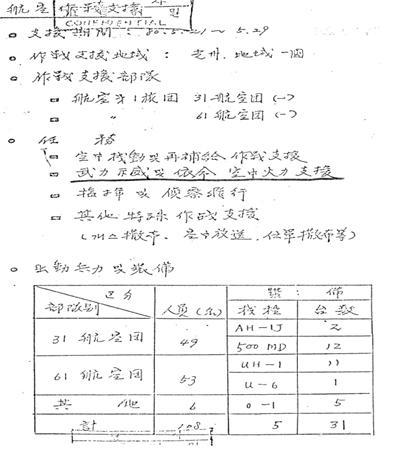 航空 作戰支援
CONFIDENTIAL
○ 支援期間 : 80.5.21 ~ 5.29
○ 作戰支援地域 : 光州 地域 一圓
○ 作戰支援部隊
□ 航空第1旅団 31航空団 (-)
□ 〃 61航空団 (-)
○ 任 務
□ 空中机動 및 再補給 作戰支援
□ 武力示威 및 依命 空中火力支援
□ 指揮 및 偵察飛行
□ 其他 特殊作战支援
(개스撒布, 空中放送, 伝單撒布等)
○ 出動兵力 및 裝備
部隊別 区分 人員(名) 裝 備
机種 台数
31 航空団 49 AH-1J 2
500MD 12
61 航空団 53 UH-1 11
U-6 1
其 他 6 O-1 5
計 108 5 31